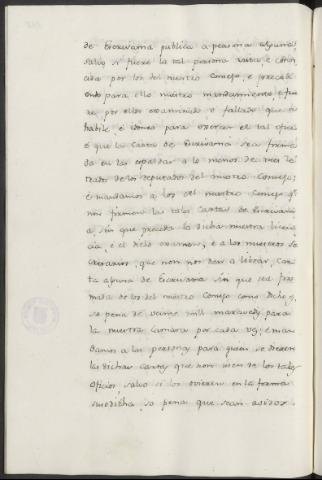 de Escrivania publica a persona alguna,
salvo si fuere la tal persona vista, e cono-
cida por los del nuestro Consejo, e precedi-
endo para ello nuestro mandamiento, e fue-
re por ellos examinado e fallado que es
habile, e idoneo para exercer el tal oficio
e que la Carta de Escrivania sea firma-
da en las espaldas a lo menos de tres le-
trados de los deputados del nuestro Consejo;
e mandamos a los del nuestro Consejo qe
non firmen las tales Cartas de Escrivani-
a, sin que preceda la dicha nuestra licen-
cia, e el dicho examen, e a los nuestros Se-
cretarios, que non nos den a librar, Car-
ta alguna de Escrivania sin que sea fir-
mada de los del nuestro Consejo como dicho es,
so pena de veinte mill maravedis para
la nuestra Camara por cada vez; e man-
damos a las personas para quien se dieren
las dichas cartas que non usen de los tales
Oficios, salvo si los ovieren en la forma
susodicha so pena que sean avidos